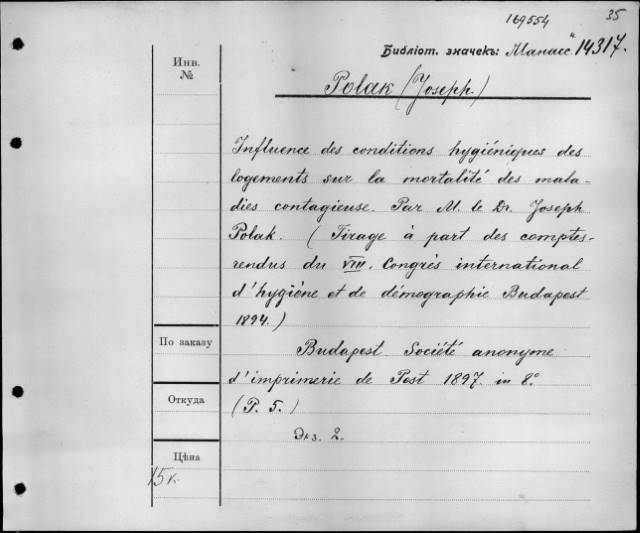 169554
35
Библіот. значекъ: Манасс" 14317.
Инв.
№
Polak (Joseph.)
Influence des conditions hygiéniques des
logements sur la mortalité des mala-
dies contagieuse. Par M. le Dr. Joseph
Polak. (Tirage à part des comptes-
rendus du VIII. Congrès international
d'hygiène et de démographie Budapest
1894.)
По заказу
Budapest Société anonyme
d'imprimerie de Pest 1897. in 8°.
Откуда
(P. 5.)
Экз. 2.
Цѣна
15 к.